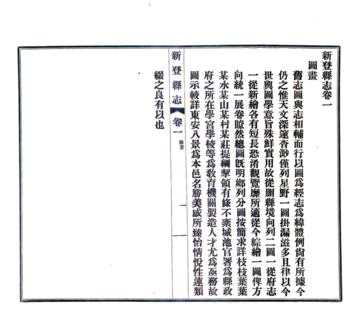 新登縣志卷一
圖畫
舊志圖與志相輔而行以圖為經志為緯體例尚有所據今
仍之惟天文深邃杳渺僅列星野一圖掛漏滋多且律以今
世輿圖學意旨殊鮮實用故從刪縣境向列二圖一從府志
一從新繪各有短長恐淆觀覽靡所適從今綜繪一圖俾方
向統一展卷瞭然總圖旣明鄉列分圖按簡求詳枝枝葉葉
某水某山某村某莊提綱挈領有條不紊城池官署為縣政
府之所在學宮學校等為敎育機關製造人才尤為亟務故
圖示較詳東安八景為本邑名勝美或所臻怡情悅性蓮類
綴之良有以也
新登縣志
卷一
圖畫
一